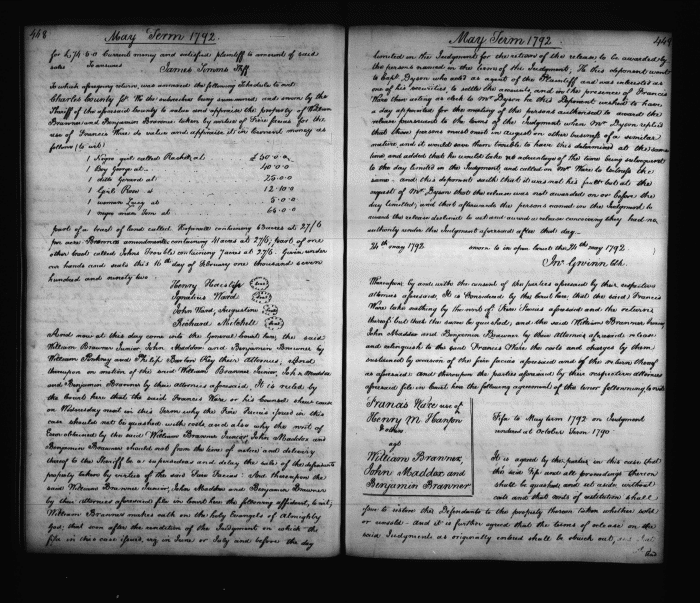 448
May Term 1792.
for £74.6.0 Current money and satisfied plaintiff to amount of said
sales So answers James Simms Shff
To which aforegoing return, was annexed the following Schedule to wit
Charles County fc We the subscribers being summoned and sworn by the
Sheriff of the aforesaid County to value and appraise the property of William
Branner and Benjamin Branner taken by virtue of Fieri facias for the
use of Francis Ware do value and appraise it in Current money as
follows (to wit)
1 Negro girl called Rachel at £50.0.0
1 Boy George at 40.0.0
1 ditto Gerard at 25.0.0
1 Girl Rose at 12.10.0
1 woman Lucy at 5.0.0
1 negro man Tom at 65.0.0
part of a tract of land called containing 60 acres at 27/6
per acre Branners amendments containing 41 acres at 27/6; part of one
other tract called Johns Trouble containing 7 acres at 27/6. Given under
our hands and seals this 16th day of February one thousand seven
hundred and ninety two.
Henry Radcliffe (seal)
Ignatius Ward (seal)
John Ward, Augustine (seal)
Richard Mitchell (seal)
And now at this day come into the General Court here, the said
William Branner Junior, John Maddox and Benjamin Branner by
William Pinkney and Philip Barton Key their Attornies, And
thereupon on motion of the said William Branner Junior, John Maddox
and Benjamin Branner by their attornies aforesaid, It is ruled by
the Court here that the said Francis Ware or his Counsel shew cause
on Wednesday next in this Term why the Fieri Facias issued in this
case should not be quashed with costs, and also why the writ of
Error obtained by the said William Branner Junior, John Maddox and
Benjamin Branner should not from the time of notice and delivery
thereof to the Sheriff be a supersedeas and delay the sale of the defendants
property taken by virtue of the said Fieri Facias: And thereupon the
said William Branner Junior, John Maddox and Benjamin Branner
by their attornies aforesaid file in Court here the following affidavit, to wit;
William Branner makes oath on the holy Evangels of Almighty
God, that soon after the rendition of the Judgment on which the
fifa in this case issued, viz in June or July and before the day
449
May Term 1792
limited in the Judgment for the return of the release to be awarded by
the persons named in the terms of the Judgment, He this deponent went
to Capt Dyson who acts as agent of the Plaintiff and was interested as
one of his securities to settle the amounts, and in the presence of Francis
Ware then acting as clerk to Mr Dyson he this deponent wished to have
a day appointed for the meeting of the persons authorized to award the
release pursuant to the terms of the Judgment when Mr Dyson replied
that these persons must meet in August on other business of a similar
nature and it would save them trouble to have this determined at the same
time and added that he would take no advantage of the time being subsequent
to the day limited in the Judgment, and called on Mr Ware to witness the
same. and this deponent saith that it was not his fault but at the
request of Mr Dyson that the release was not awarded on or before the
day limited; and that afterwards the persons named in the Judgment to
award the release declined to act and award a release conceiving they had no
authority under the Judgment aforesaid after that day.
24th may 1792 sworn to in open Court the 24th may 1792.
Jno Gwinn Clk.
Whereupon by and with the consent of the parties aforesaid by their respective
attornies aforesaid. It is Considered by the Court here, that the said Francis
Ware take nothing by the writ of Fieri Facias aforesaid and the return
thereof but that the same be quashed; and the said William Branner Junior
John Maddox and Benjamin Branner by their Attornies aforesaid release
and relinquish to the said Francis Ware the costs and charges by them
sustained by occasion of the fieri facias aforesaid and of the return thereof
as aforesaid: and thereupon the parties aforesaid by their respective attornies
aforesaid file in Court here the following agreement of the tenor following, to wit:
Francis Ware use of
Henry M Hanson
& others
agt
William Branner
John Maddox and
Benjamin Branner
Fifa to May term 1792 on Judgment
rendered at October Term 1790.
It is agreed by the parties in this case that
this said fifa and all proceedings thereon
shall be quashed and set aside without
costs and that writs of restitution shall
issue to restore this Defendants to the property therein taken whether sold
or unsold. And it is further agreed that the terms of release on the
said Judgments as originally entered shall be struck out,
and